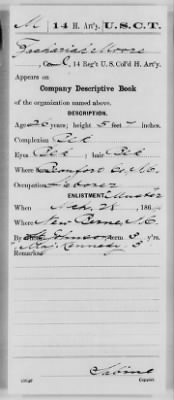 M | 14 H. Art'y. | U.S.C.T.
Zachariah Moore
Co. , 14 Reg't U. S. Col'd H. Art'y.
Appears on
Company Descriptive Book
of the organization named above.
DESCRIPTION.
Age 26 years; height 5 feet inches.
Complexion Blk
Eyes Blk ; hair Blk
Where born Beaufort Co. N.C.
Occupation Laborer
ENLISTMENT. Muster
When Mch. 28, 186
Where New Berne, N.C.
By Johnson; term 3 y'rs.
Maj. Kennedy
Remarks
Sabine
Copyist.